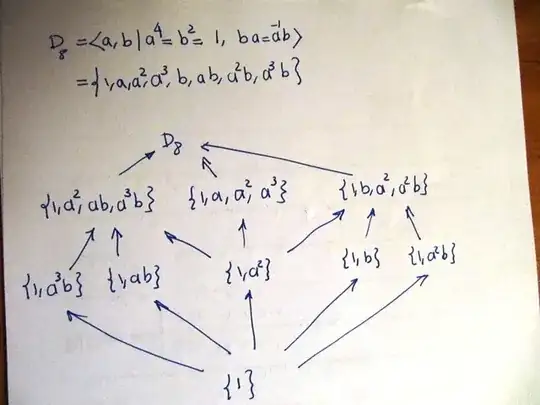 D₈ = ⟨a, b | a⁴ = b² = 1, ba = a⁻¹b⟩
= {1, a, a², a³, b, ab, a²b, a³b}
D₈
{1, a², ab, a³b} {1, a, a², a³} {1, b, a², a²b}
{1, a³b} {1, ab} {1, a²} {1, b} {1, a²b}
{1}